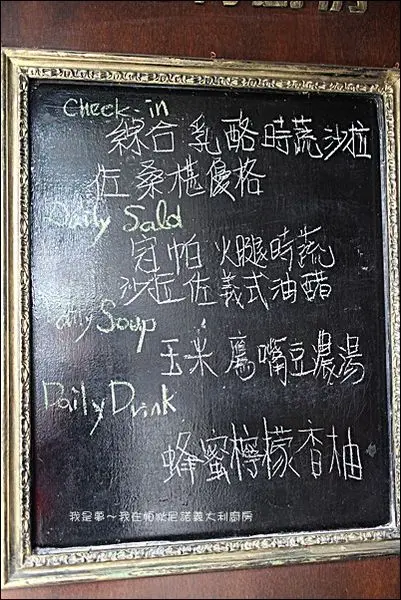 Check-in
綜合乳酪時蔬沙拉
佐桑椹優格
Daily Sald
帕火腿時蔬
沙拉佐義式油醋
daily Soup
玉米鷹嘴豆濃湯
Daily Drink
蜂蜜檸檬香柚
我是夢～我在帕就尼諾義大利廚房